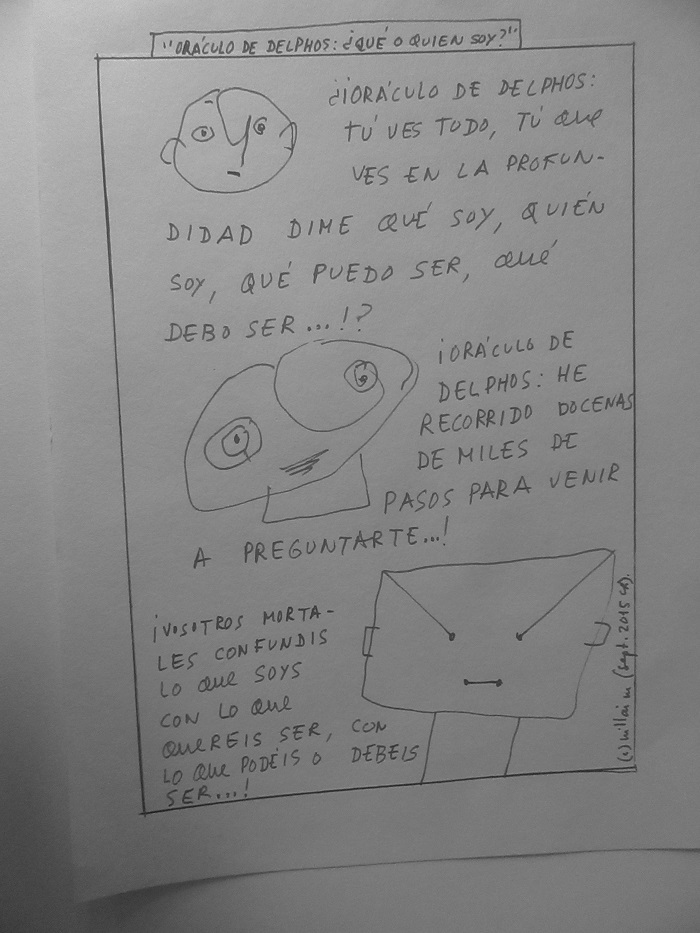 "ORÁCULO DE DELPHOS: ¿QUÉ O QUIEN SOY?"
¿¡ORÁCULO DE DELPHOS:
TÚ VES TODO, TÚ QUE
VES EN LA PROFUN-
DIDAD DIME QUÉ SOY, QUIÉN
SOY, QUÉ PUEDO SER, QUÉ
DEBO SER...!?
¡ORÁCULO DE
DELPHOS: HE
RECORRIDO DOCENAS
DE MILES DE
PASOS PARA VENIR
A PREGUNTARTE...!
¡VOSOTROS MORTA-
LES CONFUNDIS
LO QUE SOYS
CON LO QUE
QUEREIS SER, CON
LO QUE PODÉIS O DEBEIS
SER...!
(Sept. 2015